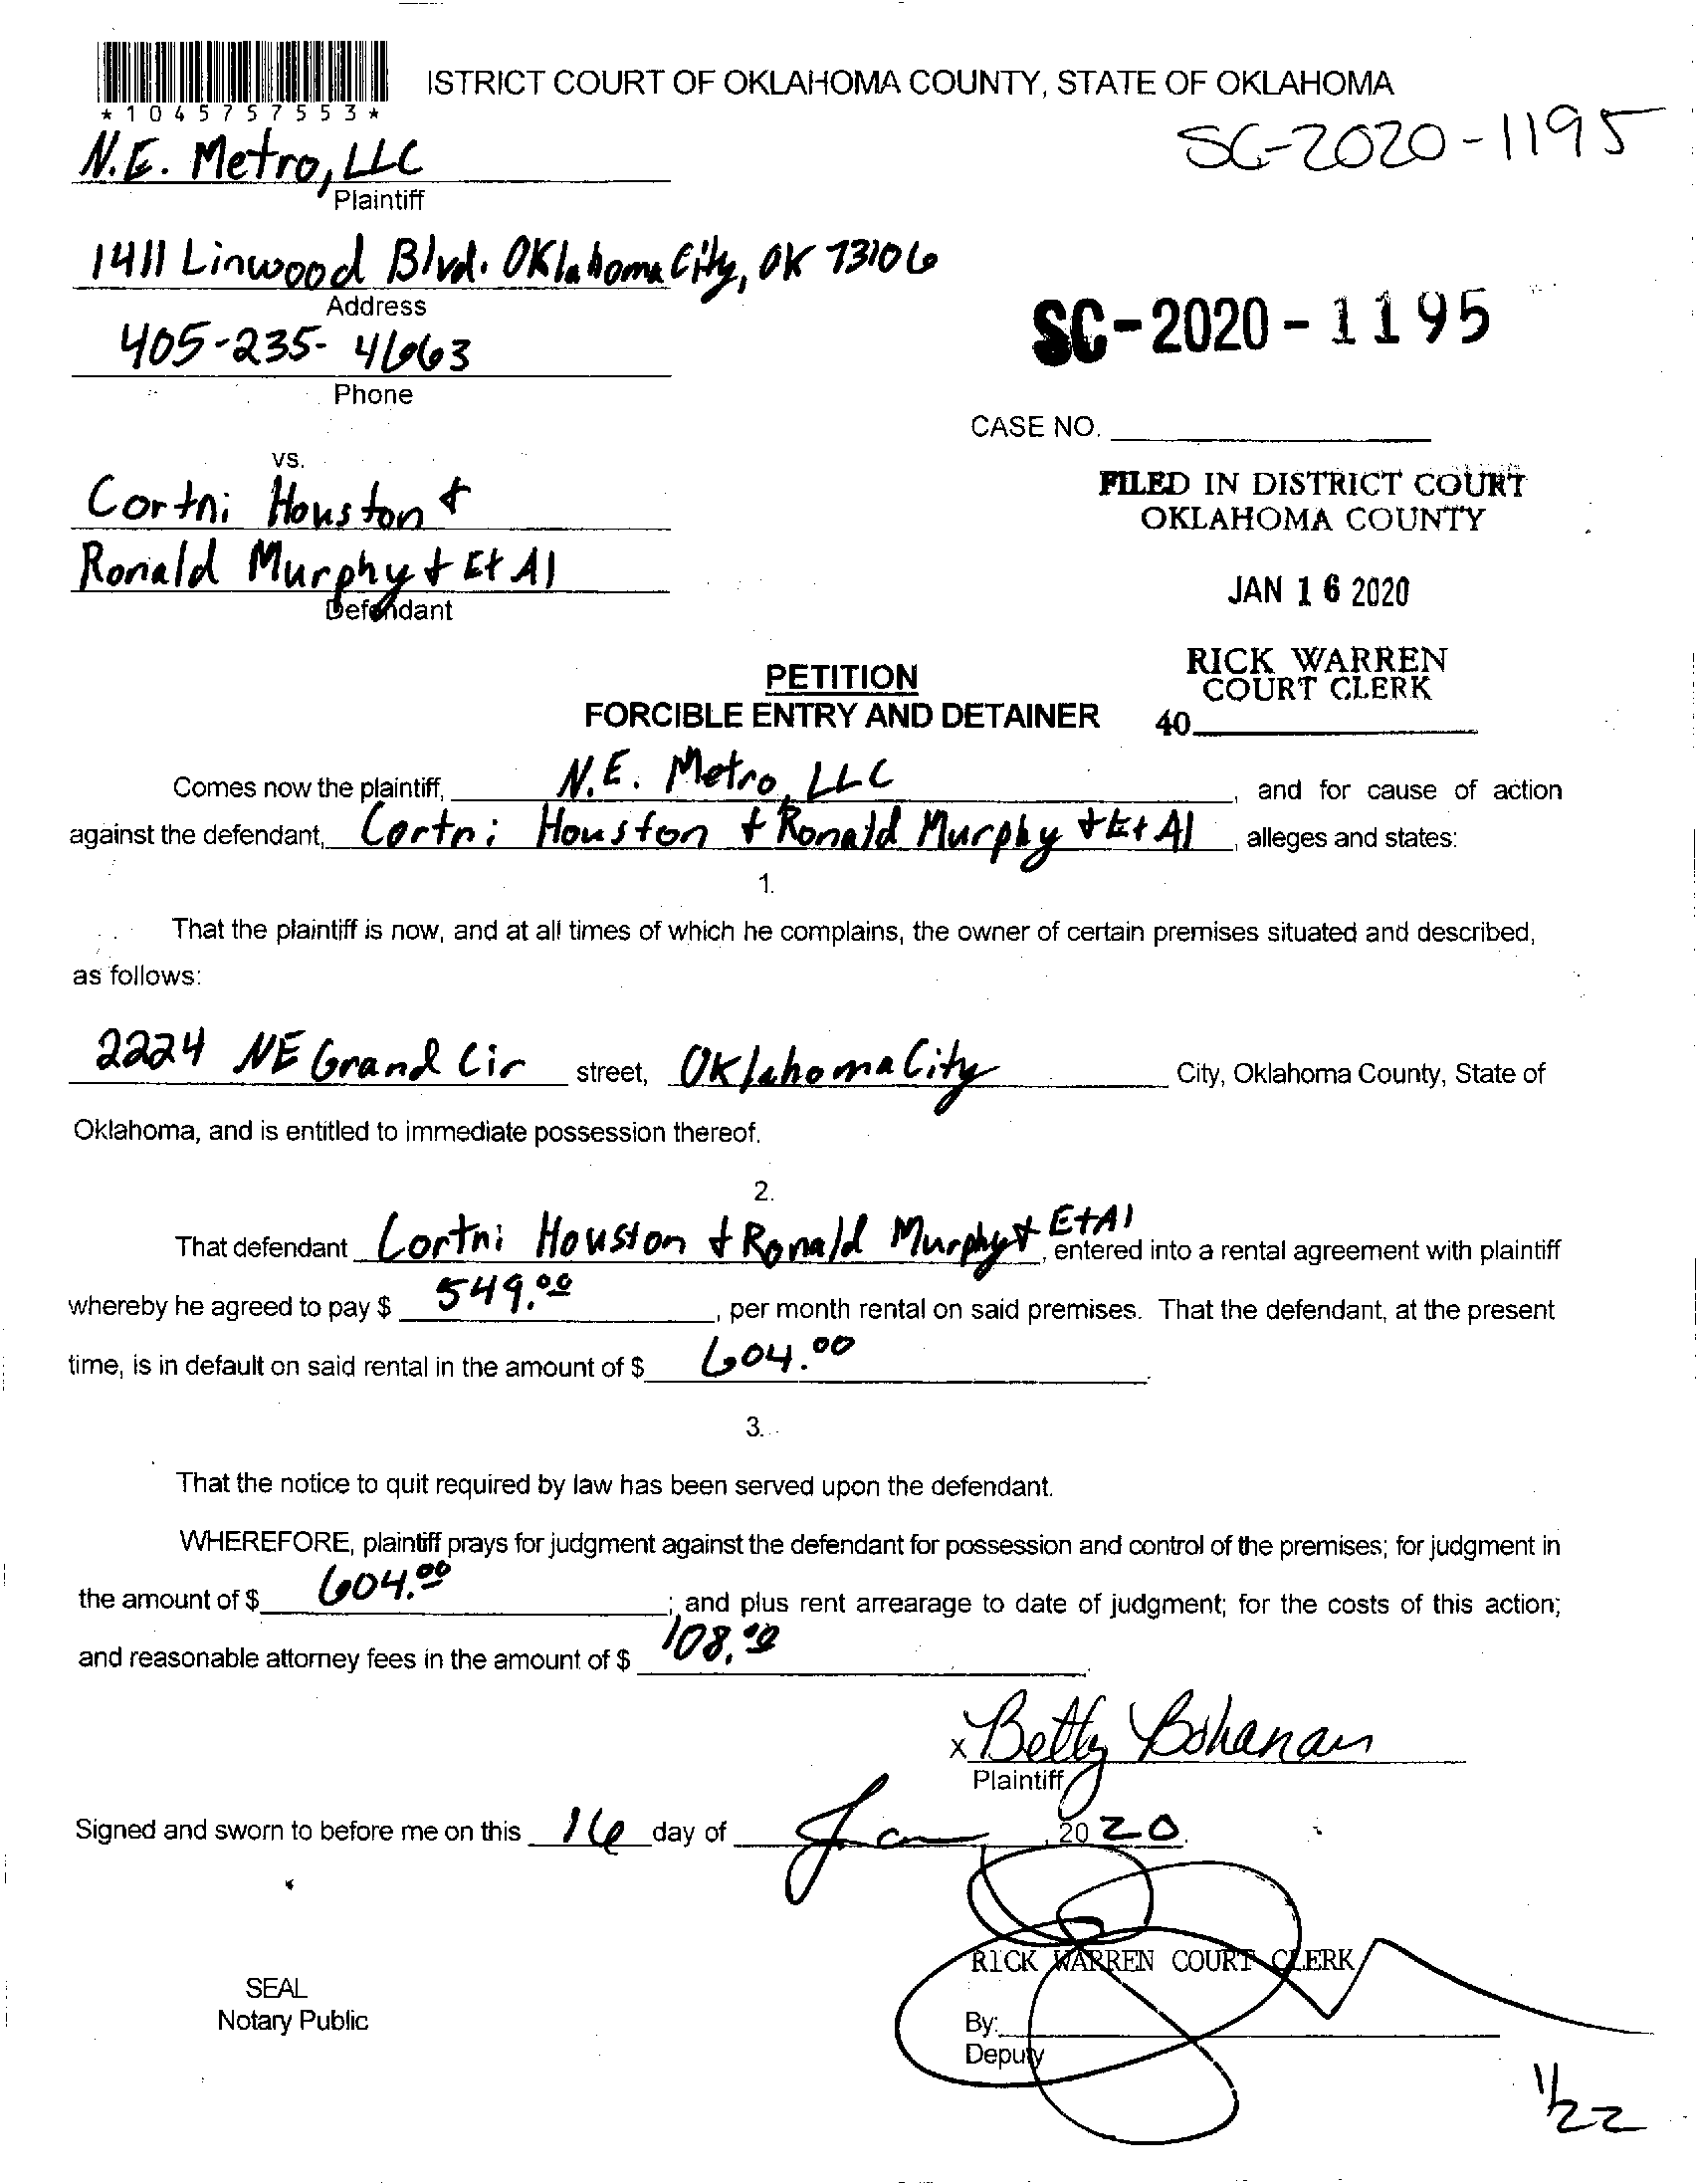 ISTRICT COURT OF OKLAHOMA COUNTY, STATE OF OKLAHOMA
*1045757553*
SC-2020-1195
N.E. Metro, LLC
Plaintiff
1411 Linwood Blvd. Oklahoma City, OK 73106
Address
SC-2020-1195
405-235-4663
Phone
CASE NO.
vs.
Cortni Houston &
FILED IN DISTRICT COURT
OKLAHOMA COUNTY
Ronald Murphy & Et Al
Defendant
JAN 16 2020
RICK WARREN
COURT CLERK
40
PETITION
FORCIBLE ENTRY AND DETAINER
Comes now the plaintiff, N.E. Metro, LLC, and for cause of action
against the defendant, Cortni Houston & Ronald Murphy & Et Al, alleges and states:
1.
That the plaintiff is now, and at all times of which he complains, the owner of certain premises situated and described,
as follows:
2224 NE Grand Cir street, Oklahoma City City, Oklahoma County, State of
Oklahoma, and is entitled to immediate possession thereof.
2.
That defendant Cortni Houston & Ronald Murphy & Et Al, entered into a rental agreement with plaintiff
whereby he agreed to pay $ 549.00, per month rental on said premises. That the defendant, at the present
time, is in default on said rental in the amount of $ 604.00.
3.
That the notice to quit required by law has been served upon the defendant.
WHEREFORE, plaintiff prays for judgment against the defendant for possession and control of the premises; for judgment in
the amount of $ 604.00; and plus rent arrearage to date of judgment; for the costs of this action;
and reasonable attorney fees in the amount of $ 108.00.
x Betty Bohanan
Plaintiff
Signed and sworn to before me on this 16 day of Jan, 2020.
RICK WARREN COURT CLERK
SEAL
Notary Public
By:
Deputy
1/22